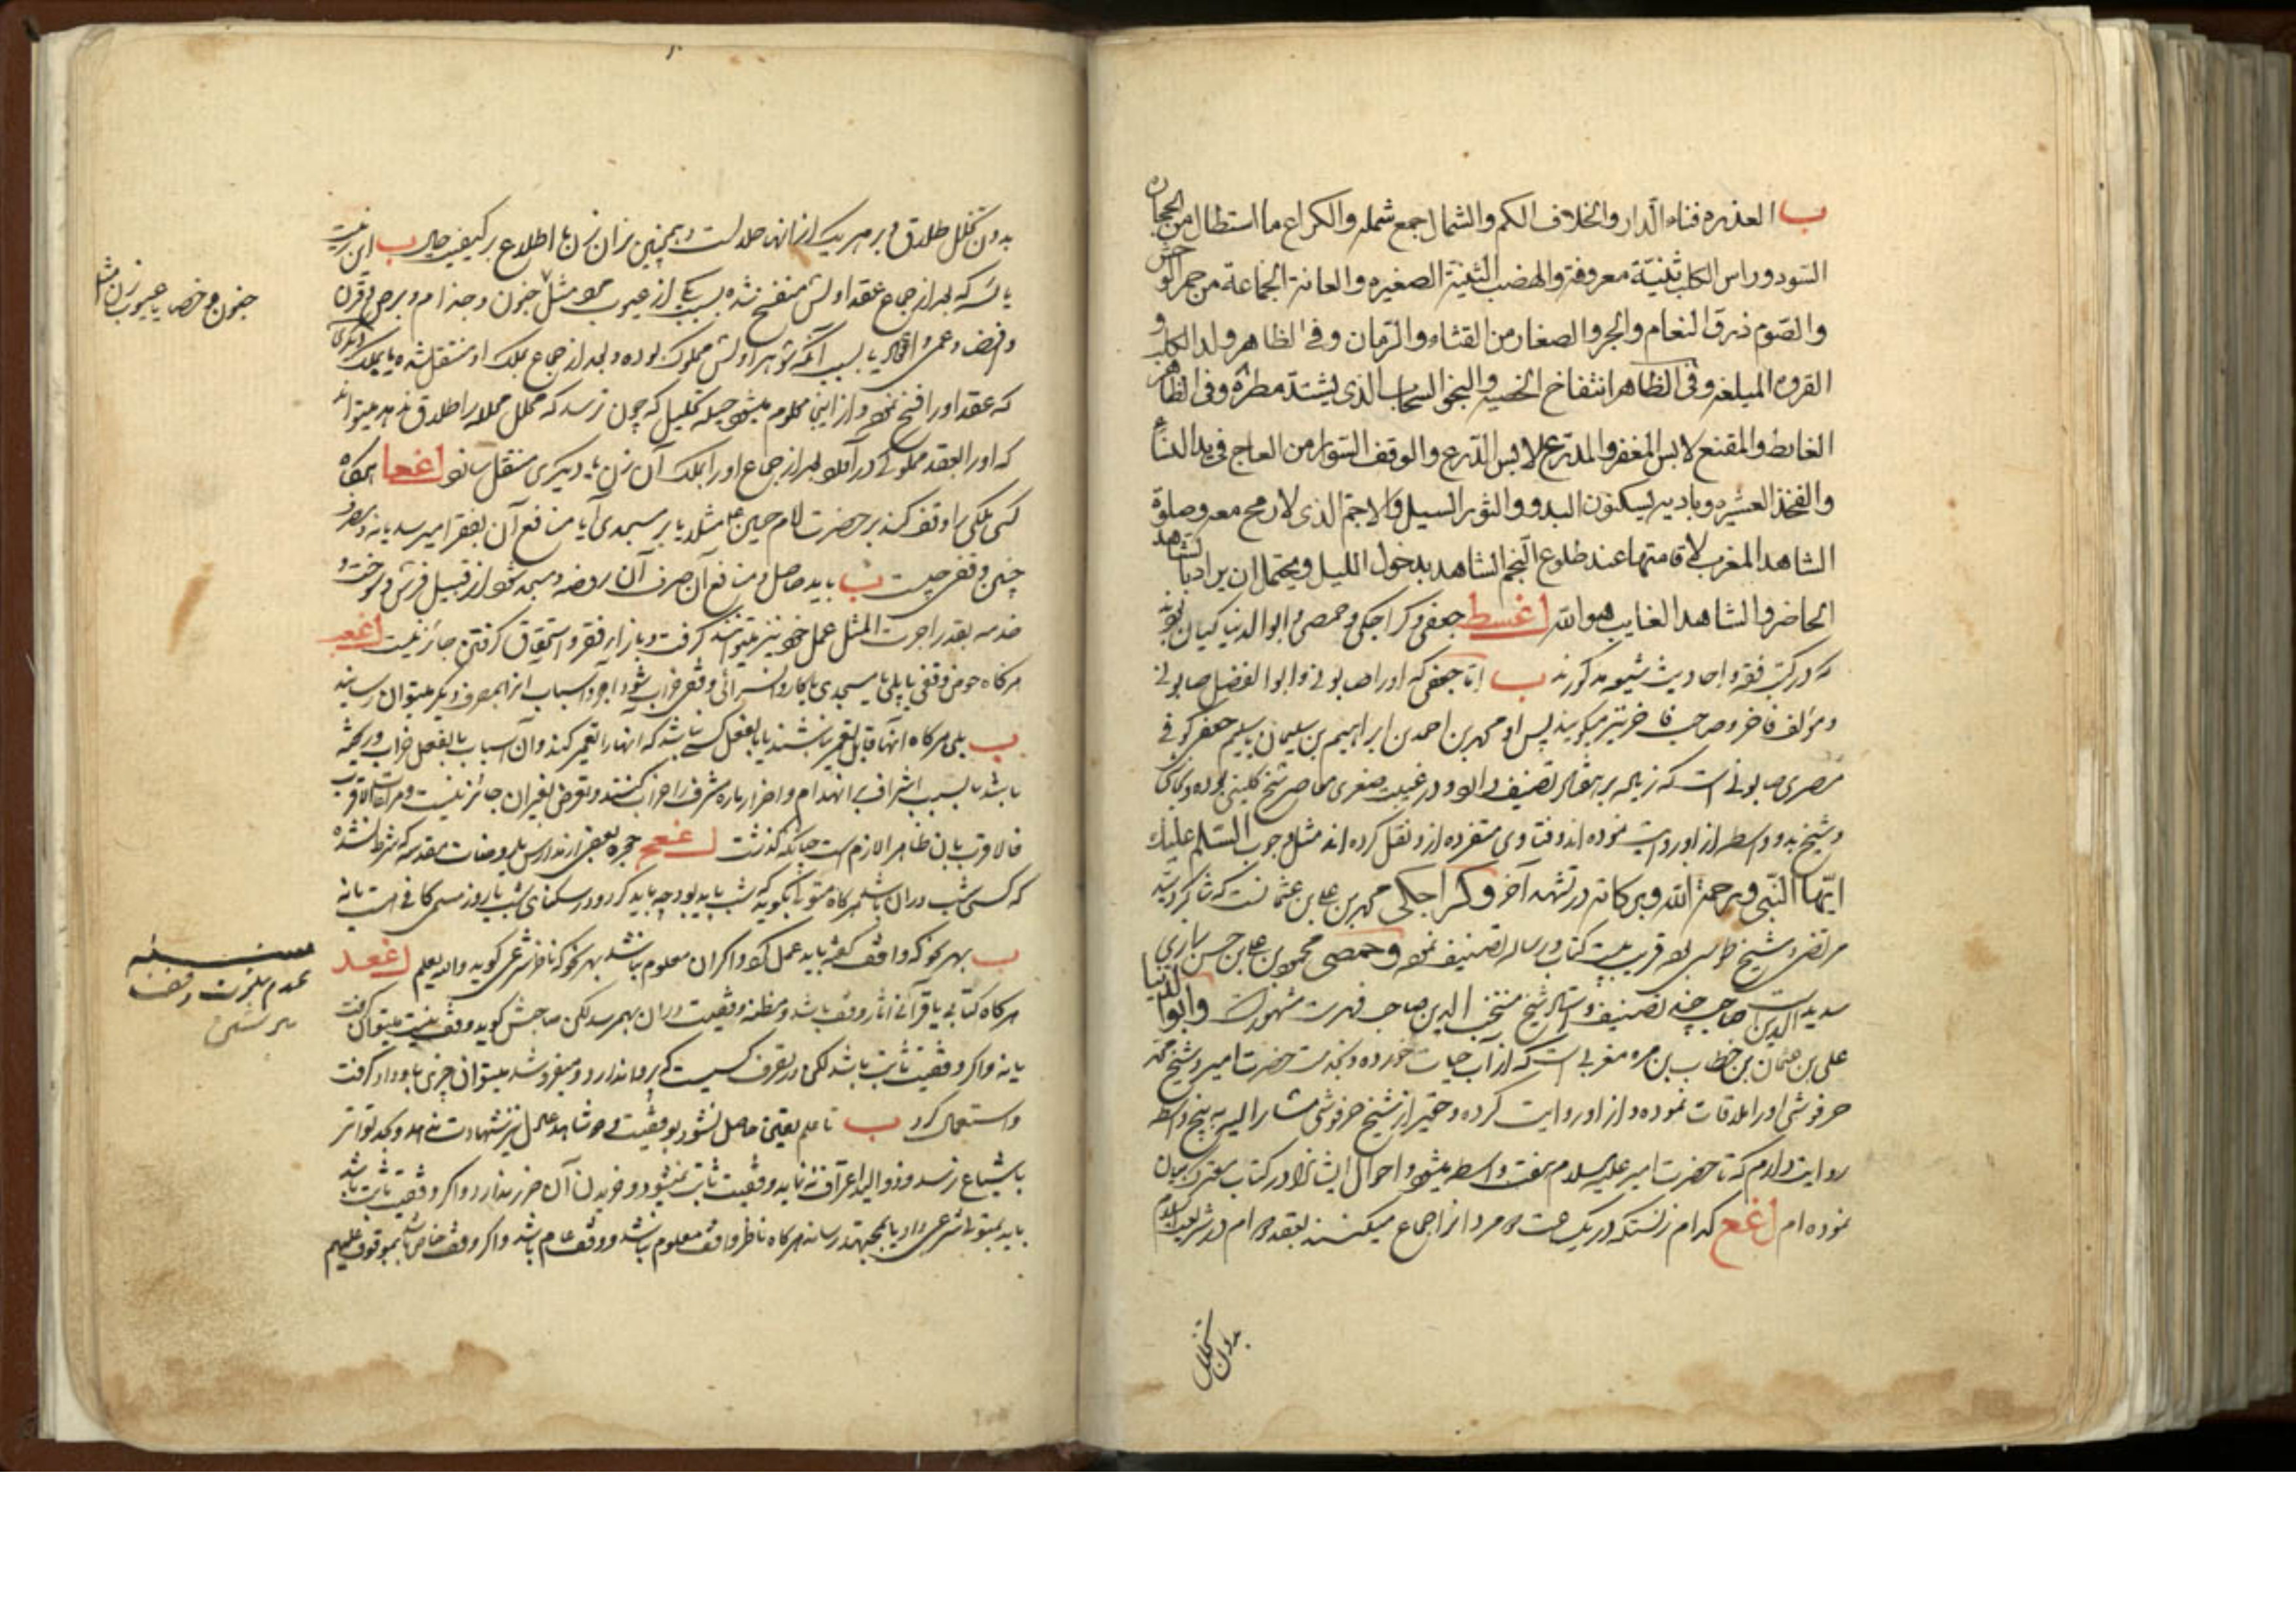 ب العذره فناء الدار والخلاف الكم والشمال جمع شمله والكراع ما استطال من الحجاره
السود وراس الكلب ثنيّة معروفة والهضب الثنية الصغيره والعانة الجماعة من حمر الوحش
والصّوم ذرق النعام والجرو الصغار من القثاء والرّمان وفى الظاهر ولد الكلب و
القروه الميلغه وفى الظاهر انتفاخ الخصيه والبخو السحاب الذى يشتدّ مطره وفى الظاهر
الغائط والمقنع لابس المغفر والمدّرع لابس الدّرع والوقف السّوار من العاج فى يد النساء
والفخذ العشيره وباديه يسكنون البدو والثور السيل والاجمّ الذى لا رمح معه وصلوة
الشاهد المغرب لاقامتها عند طلوع النجم الشاهد بدخول الليل ويحتمل ان يراد بالشاهد
الحاضر والشاهد الغايب هو الله اغسط جعفى وكراجكى وحمصى وابو الدنيا كيان
كه در كتب فقه و احاديث شيعه مذكورند ب اما جعفى كه او را صابونى و ابو الفضل صابونى
و مؤلف فاخر و صاحب فاخر نيز ميكويند پس او محمد بن احمد بن ابراهيم بن سليمان سليم جعفى كوفى
مصرى صابونى است كه زياده بر هفتاد تصنيف دارد و در غيبت صغرى معاصر شيخ كلينى بوده و نجاشى
و شيخ بدو واسطه از او روايت نموده اند و فتاوى متفرده از او نقل كرده اند مثل وجوب السّلام عليك
ايّها النّبى ورحمة الله وبركاته در تشهد آخر و كراجكى محمد بن على بن عثمانست كه شاكرد سيد
مرتضى و شيخ طوسى بوده قريب بيست كتاب و رساله تصنيف نموده و حمصى محمود بن على بن حسن رازى
سديد الدين صاحب چند تصنيف و استاد شيخ منتجب الدين صاحب فهرست مشهور است و ابو الدنيا
على بن عثمان بن خطاب بن مره مغربى است كه از آب حيات خورده و بخدمت حضرت امير و شيخ محمد
حرفوشى او را ملاقات نموده و از او روايت كرده و حقير از شيخ حرفوشى مشار اليه به پنج واسطه
روايت دارم كه تا حضرت امير عليه السلام بهفت واسطه ميشود و احوال ايشانرا در كتاب بيان
نموده ام اغع كدام زنستكه در يك مرد با او جماع ميكنند بعقد در شريعت اسلام
بدون تخلل
بدون تخلل طلاق و بر هر يك از آنها حلالست و همچنين بر آن زن با اطلاع بر كيفيت حال ب اين زنيست
يائسه كه بعد از جماع عقد اولش منفسخ شده بسبب يكى از عيوب مثل جنون و جذام و برص و قرن
و عمى و افضا يا بسبب آنكه شوهر اولش مملوك بوده و بعد از جماع بملك او منتقل شده يا بملك ديكرى
كه عقد او را فسخ نموده و از اينجا معلوم ميشود حيله تحليل كه چون ترسد كه محلل محلله را طلاق ندهد ميتواند
كه او را بعقد مملوكى درآورد و بعد از جماع او را بملك آن زن يا ديكرى منتقل سازد اغعا هركاه
كسى ملكى را وقف كند بر حضرت امام حسين ع مثلا يا بر مسجدى آيا منافع آن بفقرا ميرسد يا نه و مصرف
چنين وقفى چيست ب بايد حاصل و منافع آن صرف آن روضه و مسجد شود از قبيل فرش و سوخت و
خدمه بقدر اجرت المثل عمل خود نيز ميتوانند كرفت و بازاء فقر و استحقاق كرفتن جائز نيست اغعب
هركاه حوض وقفى يا پلى يا مسجدى يا كاروانسرائى وقفى خراب شود اجر و اسباب انرا بمصرف ديكر ميتوان رسانيد
ب بلى هركاه آنها قابل تعمير نباشند يا بالفعل كسى نباشد كه آنها را تعمير كند و آن اسباب بالفعل خراب و ريخته
باشد يا بسبب اشراف بر انهدام و اضرار پاره مشرف را خراب كنند و تعرض بغير آن جائز نيست و مراعات الاقرب
فالاقرب بآن ظاهرا لازم است چنانكه كذشت اغعج حجره بعضى از مدارس يا روضات مقدسه كه شرط شده
كه كسى شب در آن باشد هركاه متولى نكويد كه شب بايد بود چه بايد كرد و در سكناى شب يا روز مسمى كافى است يا نه
ب بهر نحو كه واقف كفته بايد عمل كرد و اكر آن معلوم نباشد بهر نحو كه ناظر شرعى كويد والله يعلم اغعد
هركاه كتابى يا قرآنى آثار وقف باشد و مظنه وقفيت در آن بهم رسد لكن صاحبش كويد وقف نيست ميتوان كرفت
يا نه و اكر وقفيت ثابت باشد لكن در تصرف كسيست كه پروا ندارد و ميفروشد ميتوان چيزى باو داد و كرفت
و استعمال كرد ب تا علم يقينى حاصل نشود بوقفيت و دو شاهد عادل نيز شهادت ندهد و بحد تواتر
يا شياع نرسد و ذو اليد اعتراف ننمايد وقفيت ثابت نميشود و خريدن آن ضرر ندارد و اكر وقفيت ثابت باشد
بايد بمتولى شرعى داد يا بمجتهد رسانيد هركاه ناظر وقف معلوم نباشد و وقف عام باشد و اكر وقف خاص باشد بموقوف عليهم
جنون مرد و خصاء يا عيوب زن مثل